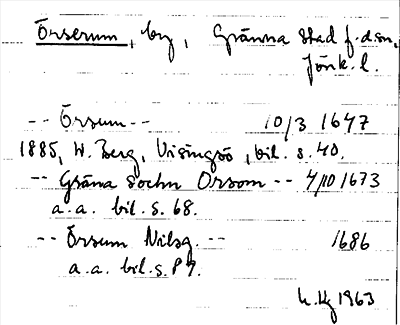 Örserum, by, Gränna stad f.d.sn,
Jönk. l.
-- Örsum -- 10/3 1647
1885, W. Berg, Visingsö, bil. s. 40.
-- Gräna Sochn Orsom -- 4/10 1673
a.a. bil. s. 68.
-- Örsum Nilsg. -- 1686
a.a. bil. s. 89.
1963